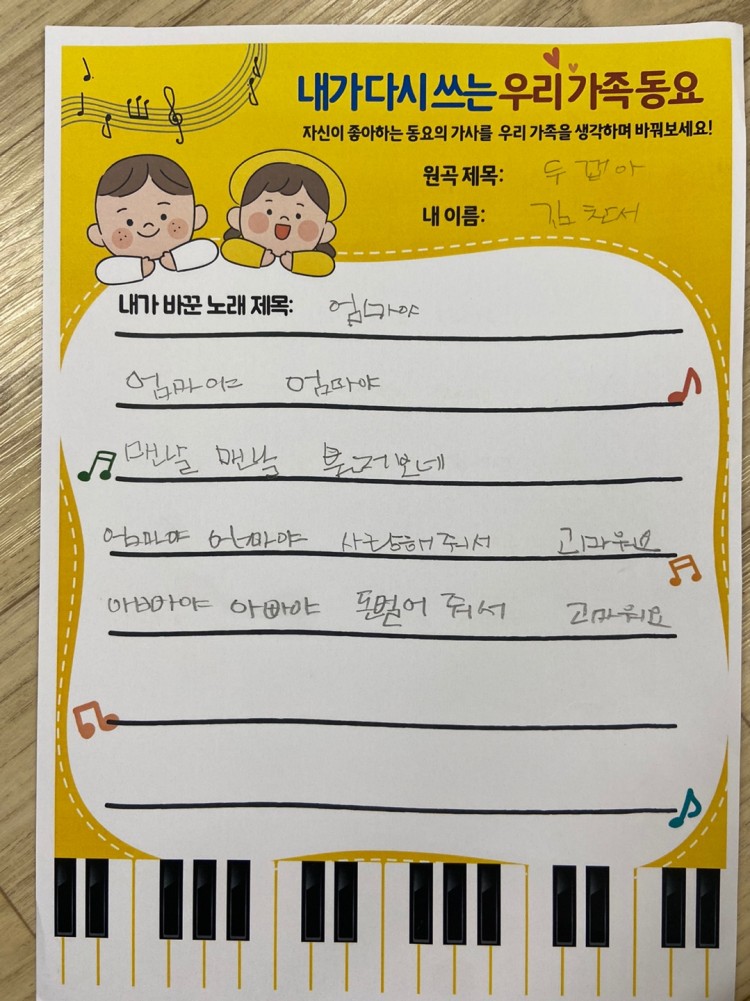 내가 다시 쓰는 우리 가족 동요
자신이 좋아하는 동요의 가사를 우리 가족을 생각하며 바꿔보세요!
원곡 제목: 두껍아
내 이름: 김찬서
내가 바꾼 노래 제목: 엄마야
엄마야 엄마야
맨날 맨날
엄마야 엄마야 사랑해 줘서 고마워요
아빠야 아빠야 돈벌어 줘서 고마워요